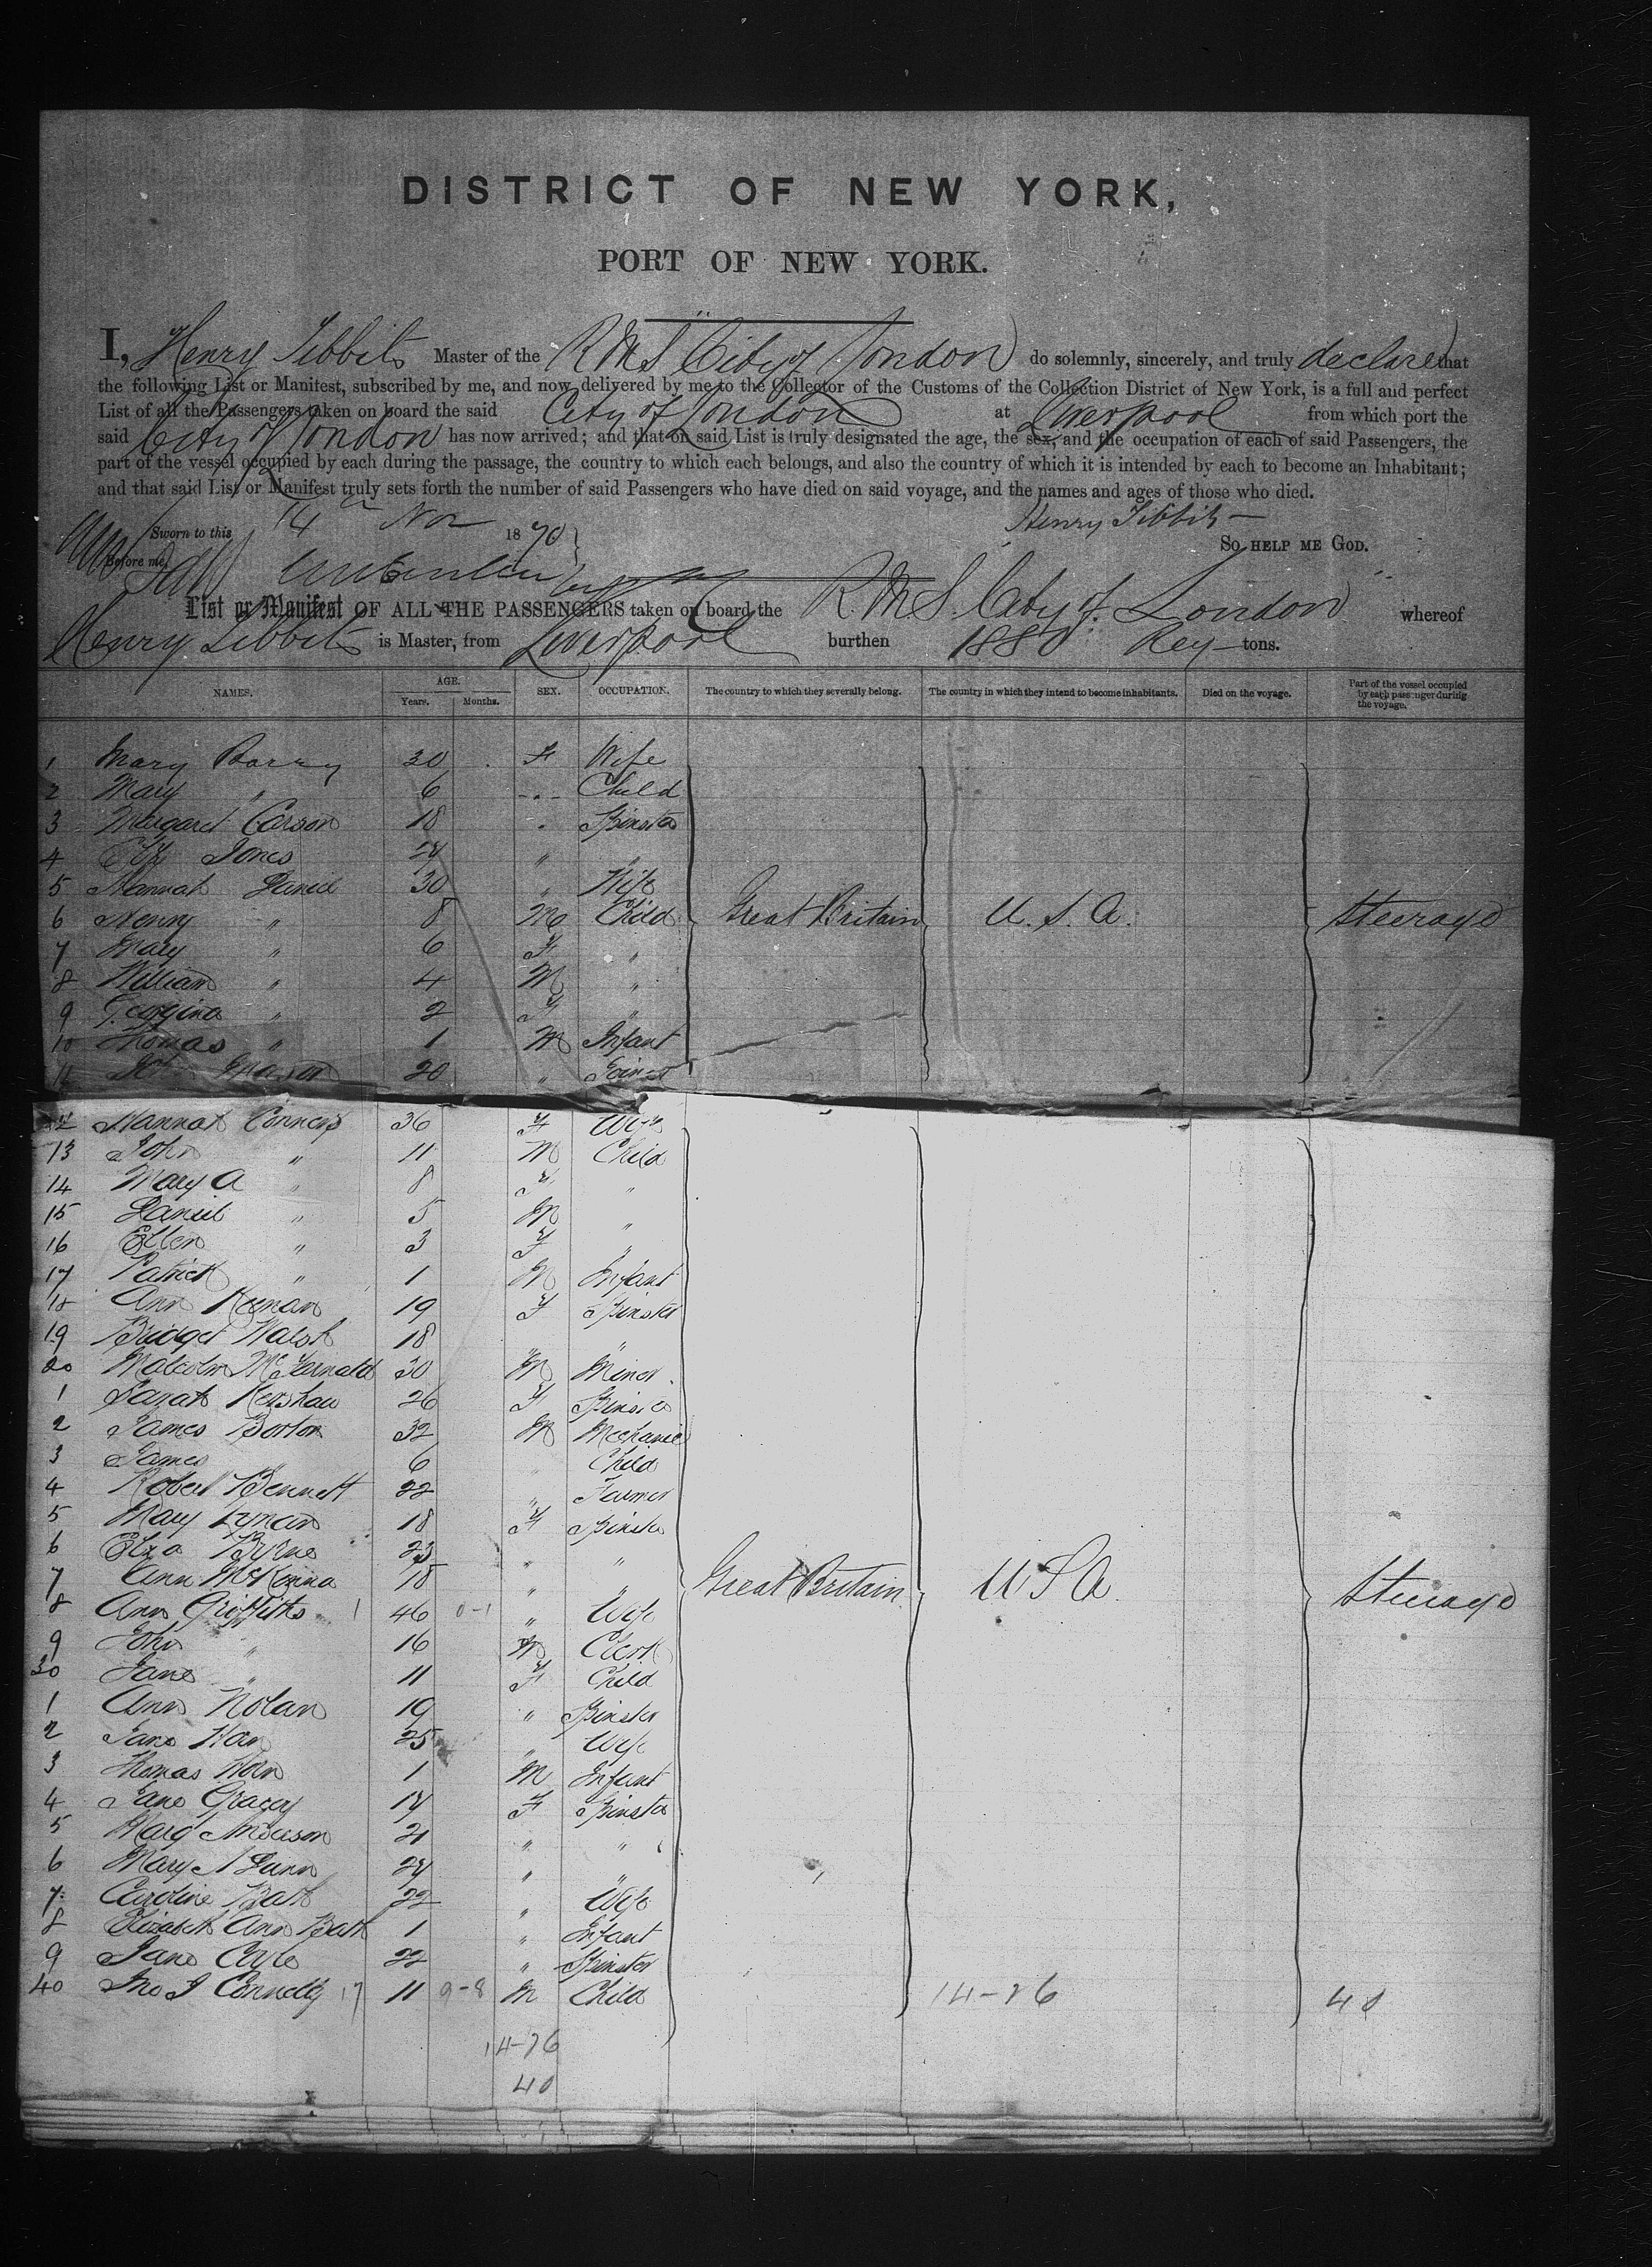 DISTRICT OF NEW YORK,
PORT OF NEW YORK.
I, Henry Tibbits Master of the R M S City of London do solemnly, sincerely, and truly declare that
the following List or Manifest, subscribed by me, and now delivered by me to the Collector of the Customs of the Collection District of New York, is a full and perfect
List of all the Passengers taken on board the said City of London at Liverpool from which port the
said City of London has now arrived; and that on said List is truly designated the age, the sex, and the occupation of each of said Passengers, the
part of the vessel occupied by each during the passage, the country to which each belongs, and also the country of which it is intended by each to become an Inhabitant;
and that said List or Manifest truly sets forth the number of said Passengers who have died on said voyage, and the names and ages of those who died.
Sworn to this 14th Nov 1870 Henry Tibbits
Before me, SO HELP ME GOD.
List or Manifest OF ALL THE PASSENGERS taken on board the R.M.S. City of London whereof
Henry Tibbits is Master, from Liverpool burthen 1880 Reg tons.
NAMES. AGE. Years. Months. SEX. OCCUPATION. The country to which they severally belong. The country in which they intend to become inhabitants. Died on the voyage. Part of the vessel occupied by each passenger during the voyage.
1 Mary Barry 30 F Wife
2 Mary " 6 " Child
3 Margaret Carson 18 " Spinster
4 Jones "
5 Hannah Daniel 30 " Wife
6 Henry " 8 M Child Great Britain U.S.A. Steerage
7 Mary " 6 F "
8 William " 4 M "
9 Georgina " 2 F "
10 Thomas " 1 M Infant
11 20 "
12 Hannah Connors 36 F Wife
13 John " 11 M Child
14 Mary A " 8 F "
15 Daniel " 5 M "
16 Ellen " 3 F "
17 Patrick " 1 M Infant
18 Ann Keenan 19 F Spinster
19 Bridget Walsh 18 " "
20 Malcolm 30 M Miner
1 Sarah Kershaw 26 F Spinster
2 James Borton 32 M Mechanic
3 James " 6 " Child
4 Robert Bennett 22 " Farmer
5 Mary Lynan 18 F Spinster
6 Eliza Byrne 23 " "
7 Ann McKenna 18 " " Great Britain U S A Steerage
8 Ann Griffiths 1 46 0-1 " Wife
9 John " 16 M Clerk
30 Jane " 11 F Child
1 Ann Nolan 19 " Spinster
2 Jane 25 " Wife
3 Thomas 1 M Infant
4 Jane Gracey 17 F Spinster
5 Marg Anderson 21 " "
6 Mary A Dunn 24 " "
7 Caroline Bath 22 " Wife
8 Elizabeth Ann Bath 1 " Infant
9 Jane 22 " Spinster
40 Jno J Connelly 17 11 9-8 M Child 14-26 40
14-26
40